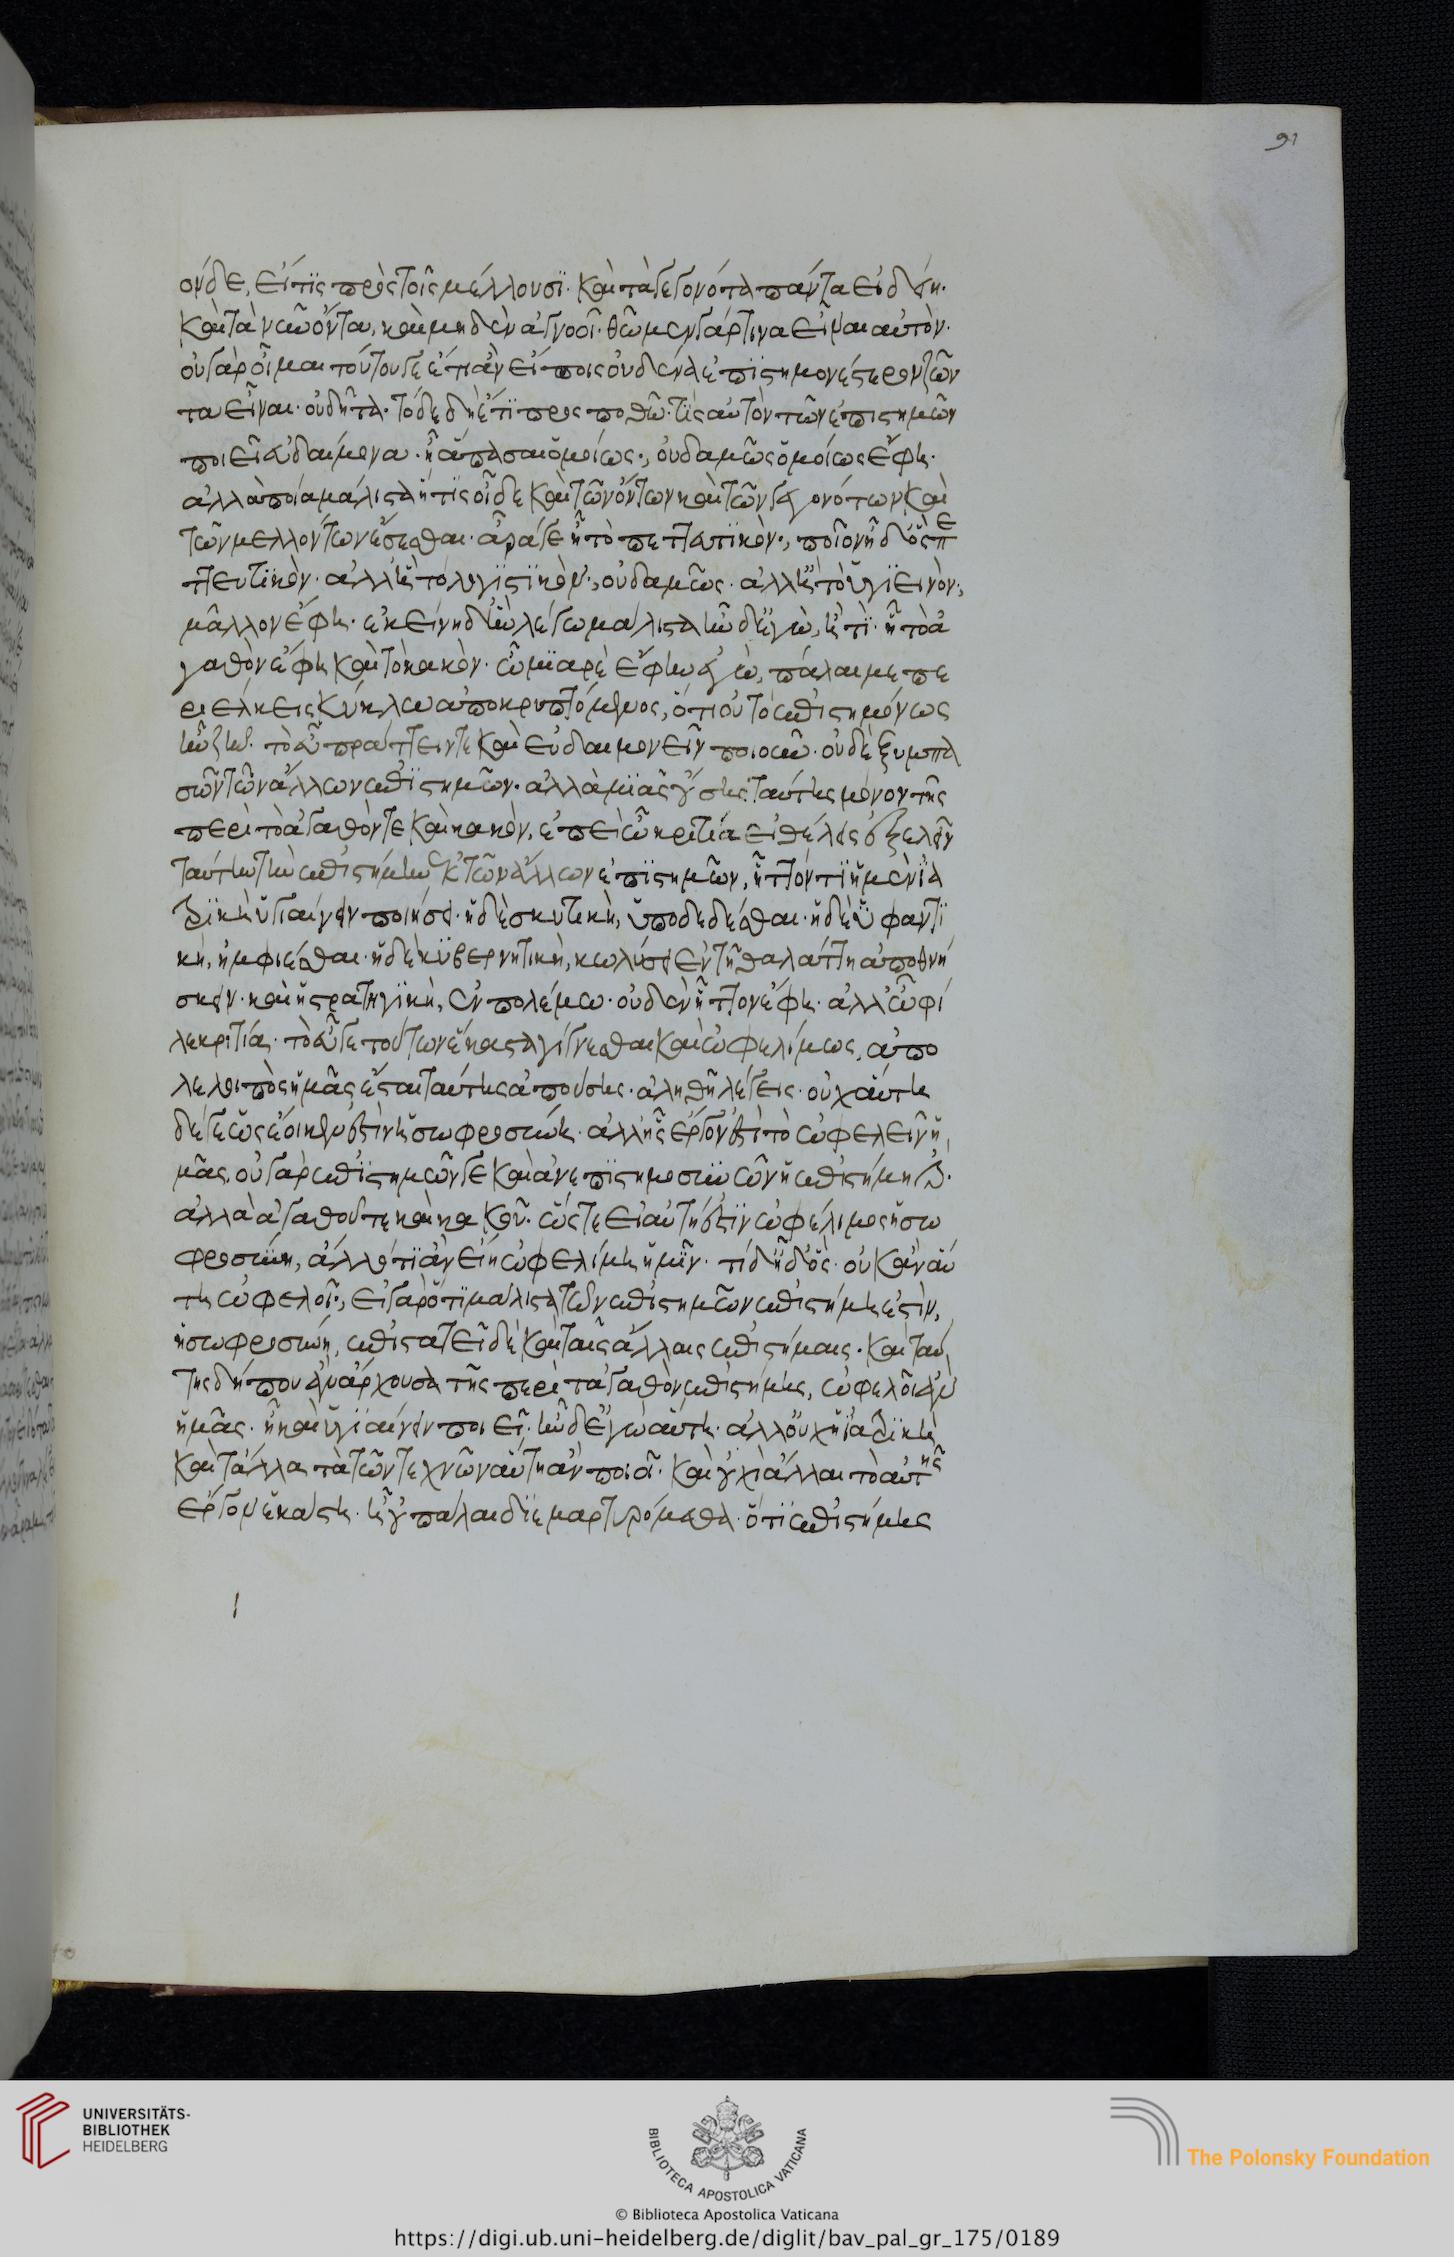 91
ὁνδε, εἴ τις πρὸς τοῖς μέλλουσι καὶ τὰ γεγονότα πάντα εἰδείη.
καὶ τὰ νῦν ὄντα, καὶ μηδὲν ἀγνοοῖ. θῶμεν γάρ τινα εἶναι αὐτόν.
οὐ γὰρ οἶμαι τούτου γε ἔτι ἂν εἴποις οὐδένα ἐπιστημονέστερον ζῶν
τα εἶναι. οὐ δῆτα. τόδε δὴ ἔτι προσποθῶ. τίς αὐτὸν τῶν ἐπιστημῶν
ποιεῖ εὐδαίμονα. ἢ ἅπασαι ὁμοίως., οὐδαμῶς ὁμοίως ἔφη.
ἀλλὰ ποία μάλιστα ἥ τις οἶδε καὶ τῶν ὄντων καὶ τῶν γεγονότων καὶ
τῶν μελλόντων ἔσεσθαι. ἆρά γε ἢ τὸ πεττευτικόν., ποῖον ἦ δ' ὃς πε
ττευτικόν. ἀλλ' ἢ τὸ λογιστικόν., οὐδαμῶς. ἀλλ' ἢ τὸ ὑγιεινόν.,
μᾶλλον ἔφη. ἐκείνη δ' ἣν λέγω μάλιστα ἦν δ' ἐγὼ, ἢ τί. ἢ τὸ ἀ
γαθὸν ἔφη καὶ τὸ κακόν. ὦ μιαρὲ ἔφην ἐγὼ, πάλαι με πε
ριέλκεις κύκλῳ ἀποκρυπτόμενος, ὅτι οὐ τὸ ἐπιστημόνως
ἦν ζῆν. τὸ εὖ πράττειν τε καὶ εὐδαιμονεῖν ποιοῦν. οὐδὲ ξυμπα
σῶν τῶν ἄλλων ἐπιστημῶν. ἀλλὰ μιᾶς οὔσης ταύτης μόνον τῆς
περὶ τὸ ἀγαθόν τε καὶ κακόν. ἐπεὶ ὦ κριτία εἰ θέλεις ἐξελεῖν
ταύτην τὴν ἐπιστήμην ἐκ τῶν ἄλλων ἐπιστημῶν, ἧττόν τι ἡ μὲν ἰα
τρικὴ ὑγιαίνειν ποιήσει. ἡ δὲ σκυτικὴ, ὑποδεδέσθαι. ἡ δὲ ὑφαντι
κὴ, ἠμφιέσθαι. ἡ δὲ κυβερνητικὴ, κωλύσει ἐν τῇ θαλάττῃ ἀποθνή
σκειν. καὶ ἡ στρατηγικὴ, ἐν πολέμῳ. οὐδὲν ἧττον ἔφη. ἀλλ' ὦ φί
λε κριτία. τὸ εὖ γε τούτων ἕκαστα γίγνεσθαι καὶ ὠφελίμως, ἀπο
λελοιπὸς ἡμᾶς ἔσται ταύτης ἀπούσης. ἀληθῆ λέγεις. οὐχ αὕτη
δέ γε ὡς ἔοικεν ἐστὶν ἡ σωφροσύνη. ἀλλ' ἧς ἔργον ἐστὶ τὸ ὠφελεῖν ἡ
μᾶς. οὐ γὰρ ἐπιστημῶν γε καὶ ἀνεπιστημοσυνῶν ἡ ἐπιστήμη ἐστίν.
ἀλλὰ ἀγαθοῦ τε καὶ κακοῦ. ὥστε εἰ αὐτή ἐστιν ὠφέλιμος ἡ σω
φροσύνη, ἄλλο τι ἂν εἴη ὠφελίμη ἡμῖν. τί δ' ἦ δ' ὅς. οὐκ ἂν αὕ
τη ὠφελοῖ., εἰ γὰρ ὅτι μάλιστα τῶν ἐπιστημῶν ἐπιστήμη ἐστὶν,
ἡ σωφροσύνη, ἐπιστατεῖ δὲ καὶ ταῖς ἄλλαις ἐπιστήμαις. καὶ ταύ
της δήπου ἂν ἄρχουσα τῆς περὶ τἀγαθὸν ἐπιστήμης, ὠφελοῖ ἂν
ἡμᾶς. ἦ καὶ ὑγιαίνειν ποιεῖ, ἦν δ' ἐγὼ αὕτη. ἀλλ' οὐχ ἡ ἰατρικὴ
καὶ τἄλλα τὰ τῶν τεχνῶν αὕτη ἂν ποιοῖ. καὶ οὐχὶ ἄλλαι τὸ αὐτῆς
ἔργον ἑκάστη. ἢ οὐ πάλαι διεμαρτυρόμεθα. ὅτι ἐπιστήμης
UNIVERSITÄTS-
BIBLIOTHEK
HEIDELBERG
BIBLIOTECA APOSTOLICA VATICANA
The Polonsky Foundation
© Biblioteca Apostolica Vaticana
https://digi.ub.uni-heidelberg.de/diglit/bav_pal_gr_175/0189